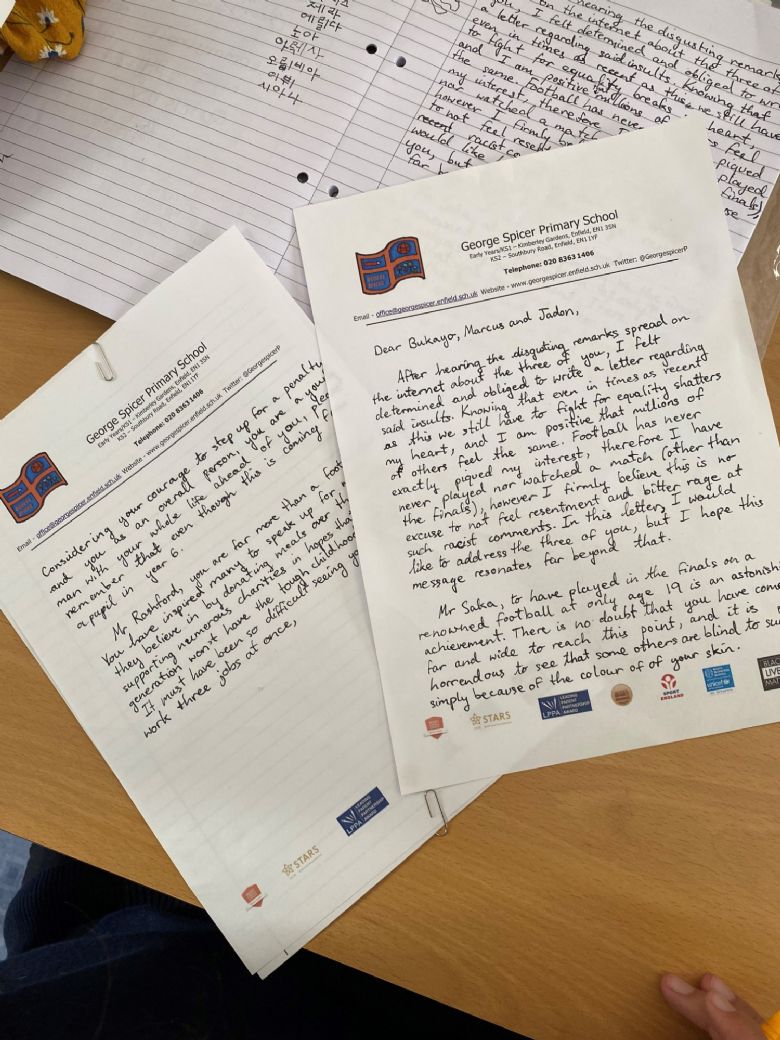 제라
에밀다
노아
아뤼사
오필리아
시아나
hearing the disgusting remark
on the internet about the three
you, I felt determined and obliged to wr
a letter regarding said insults. Knowing that
even in times as recent as this we still have
to fight for equality breaks heart,
and I am positive millions of feel
the same. Football has never piqued
my interest, therefore I played
nor watched a match finals)
however I firmly
to not feel
recent racist
would like
you, but
far
George Spicer Primary School
Early Years/KS1 – Kimberley Gardens, Enfield, EN1 3SN
KS2 – Southbury Road, Enfield, EN1 1YF
Telephone: 020 8363 1406
Email - office@georgespicer.enfield.sch.uk Website - www.georgespicer.enfield.sch.uk Twitter: @GeorgespicerP
Dear Bukayo, Marcus and Jadon,
After hearing the disgusting remarks spread on
the internet about the three of you, I felt
determined and obliged to write a letter regarding
said insults. Knowing that even in times as recent
as this we still have to fight for equality shatters
my heart, and I am positive that millions of
of others feel the same. Football has never
exactly piqued my interest, therefore I have
never played nor watched a match (other than
the finals); however I firmly believe this is no
excuse to not feel resentment and bitter rage at
such racist comments. In this letter, I would
like to address the three of you, but I hope this
message resonates far beyond that.
Mr Saka, to have played in the finals on a
renowned football at only age 19 is an astonishi
achievement. There is no doubt that you have com
far and wide to reach this point, and it is
horrendous to see that some others are blind to su
simply because of the colour of of your skin.
STARS
LEADING
PARENT
PARTNERSHIP
AWARD
LPPA
SPORT
ENGLAND
unicef
BLAC
LIVE
MAT
George Spicer Primary School
Early Years/KS1 – Kimberley Gardens, Enfield, EN1 3SN
KS2 – Southbury Road, Enfield, EN1 1YF
Telephone: 020 8363 1406
Email - office@georgespicer.enfield.sch.uk Website - www.georgespicer.enfield.sch.uk Twitter: @GeorgespicerP
Considering your courage to step up for a penalty
and you as an overall person, you are a you
man with your whole life ahead of you, plea
remember that even though this is coming f
a pupil in year 6.
Mr Rashford, you are far more than a foot
You have inspired many to speak up for
they believe in by donating meals over th
supporting neumerous charities in hopes tha
generation won't have the tough childhood
It must have been so difficult seeing yo
work three jobs at once,
STARS
LEADING
PARENT
PARTNERSHIP
AWARD
LPPA